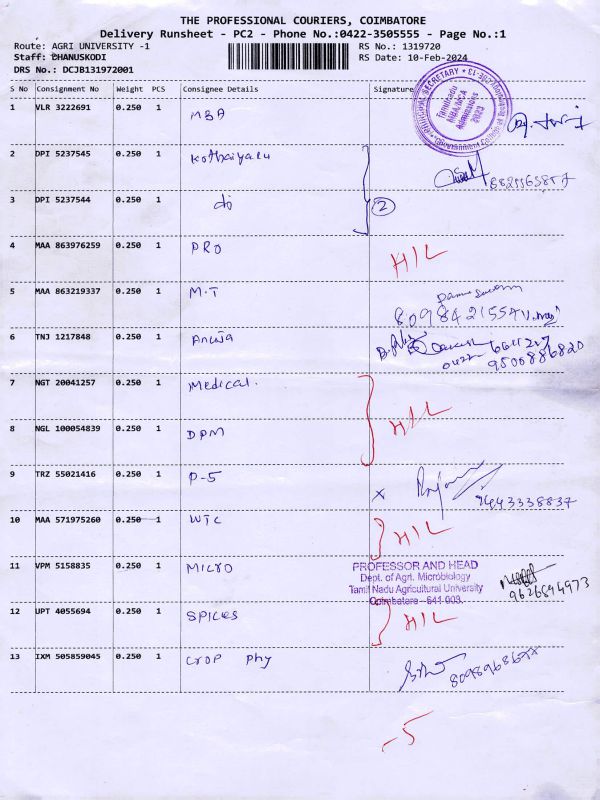 THE PROFESSIONAL COURIERS, COIMBATORE
Delivery Runsheet - PC2 - Phone No.:0422-3505555 - Page No.:1
Route: AGRI UNIVERSITY -1 RS No.: 1319720
Staff: DHANUSKODI RS Date: 10-Feb-2024
DRS No.: DCJB131972001
S No Consignment No Weight PCS Consignee Details Signature
1 VLR 3222691 0.250 1 MBA
SECRETARY
Tamilnadu
MBA/MCA
Admissions
2023
2 DPI 5237545 0.250 1 Kothaiyaru
3 DPI 5237544 0.250 1 do 2
4 MAA 863976259 0.250 1 PRO HIL
5 MAA 863219337 0.250 1 M.T
6 TNJ 1217848 0.250 1 9500886820
7 NGT 20041257 0.250 1 Medical. HIL
8 NGL 100054839 0.250 1 DPM
9 TRZ 55021416 0.250 1 P-5 x 9443338837
10 MAA 571975260 0.250 1 WTC HIL
11 VPM 5158835 0.250 1 MICRO
PROFESSOR AND HEAD
Dept. of Agrl. Microbiology
Tamil Nadu Agricultural University
Coimbatore - 641 003.
9626844973
12 UPT 4055694 0.250 1 SPICES HIL
13 IXM 505859045 0.250 1 Crop Phy
-5